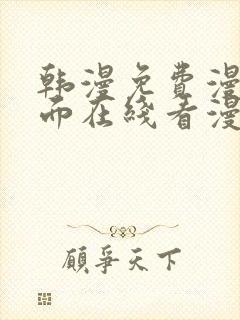 韩漫免费漫
而在线看漫
顾争天下